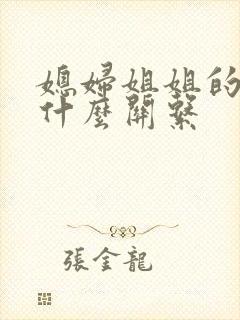 媳婦姐姐的
什麼關系
張金龍